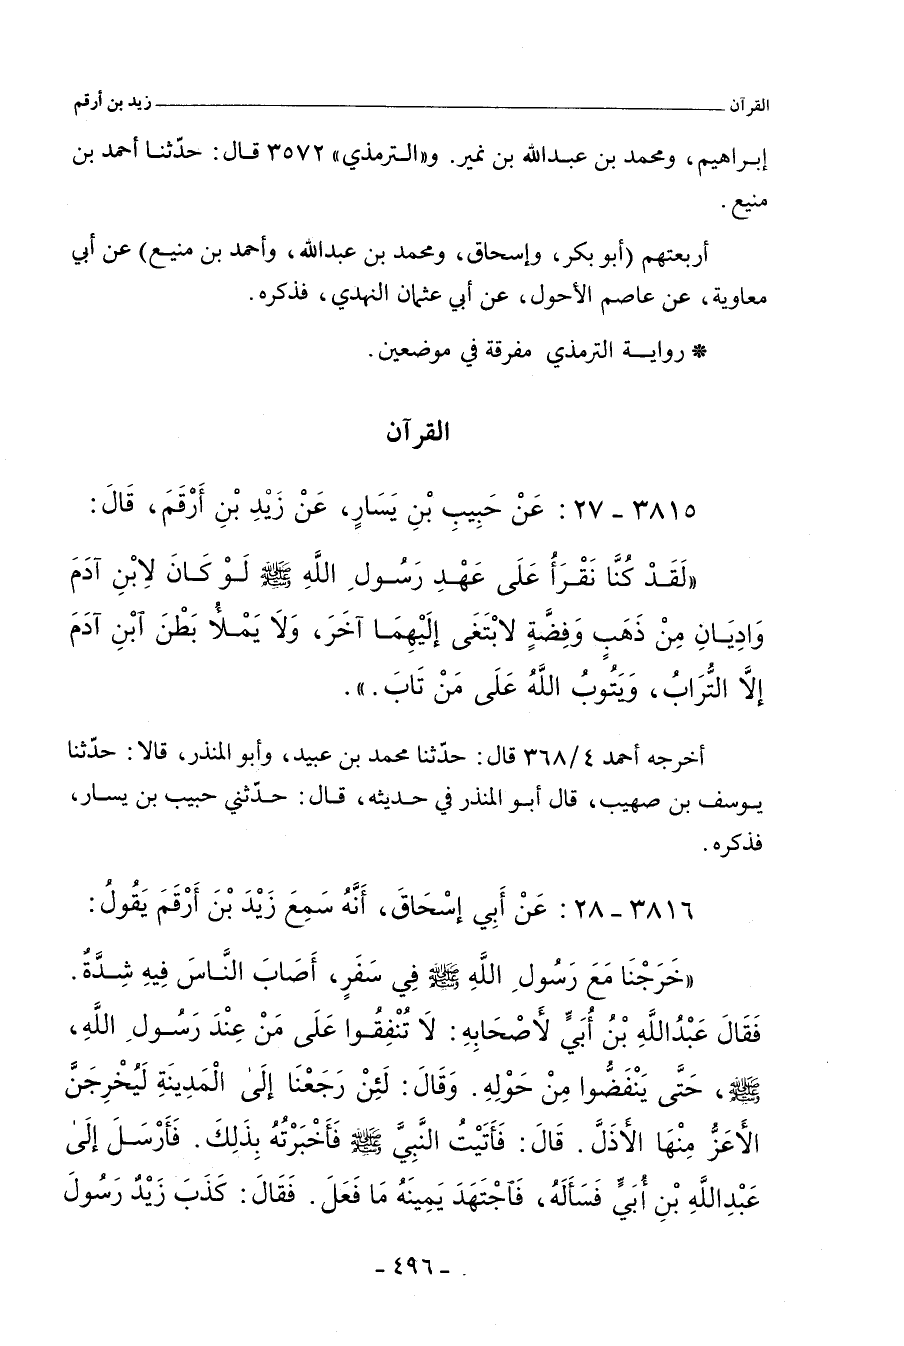 القرآن ــــــــــــــــــــ زيد بن أرقم
إبراهيم، ومحمد بن عبدالله بن نمير. و«الترمذي» ٣٥٧٢ قال: حدّثنا أحمد بن
منيع.
أربعتهم (أبو بكر، وإسحاق، ومحمد بن عبدالله، وأحمد بن منيع) عن أبي
معاوية، عن عاصم الأحول، عن أبي عثمان النهدي، فذكره.
* رواية الترمذي مفرقة في موضعين.
القرآن
٣٨١٥ - ٢٧: عَنْ حَبِيبِ بْنِ يَسَارٍ، عَنْ زَيْدِ بْنِ أَرْقَمَ، قَالَ:
«لَقَدْ كُنَّا نَقْرَأُ عَلَى عَهْدِ رَسُولِ اللَّهِ ﷺ لَوْ كَانَ لِابْنِ آدَمَ
وَادِيَانِ مِنْ ذَهَبٍ وَفِضَّةٍ لابْتَغَى إِلَيْهِمَا آخَرَ، وَلَا يَمْلأُ بَطْنَ ٱبْنِ آدَمَ
إِلَّا التُّرَابُ، وَيَتُوبُ اللَّهُ عَلَى مَنْ تَابَ.».
أخرجه أحمد ٤/٣٦٨ قال: حدّثنا محمد بن عبيد، وأبو المنذر، قالا: حدّثنا
يوسف بن صهيب، قال أبو المنذر في حديثه، قال: حدّثني حبيب بن يسار،
فذكره.
٣٨١٦ - ٢٨: عَنْ أَبِي إِسْحَاقَ، أَنَّهُ سَمِعَ زَيْدَ بْنَ أَرْقَمَ يَقُولُ:
«خَرَجْنَا مَعَ رَسُولِ اللَّهِ ﷺ فِي سَفَرٍ، أَصَابَ النَّاسَ فِيهِ شِدَّةٌ.
فَقَالَ عَبْدُاللَّهِ بْنُ أُبَيٍّ لأَصْحَابِهِ: لَا تُنْفِقُوا عَلَى مَنْ عِنْدَ رَسُولِ اللَّهِ،
ﷺ، حَتَّى يَنْفَضُّوا مِنْ حَوْلِهِ. وَقَالَ: لَئِنْ رَجَعْنَا إِلَىٰ الْمَدِينَةِ لَيُخْرِجَنَّ
الأَعَزُّ مِنْهَا الأَذَلَّ. قَالَ: فَأَتَيْتُ النَّبِيَّ ﷺ فَأَخْبَرْتُهُ بِذَلِكَ. فَأَرْسَلَ إِلَىٰ
عَبْدِاللَّهِ بْنِ أُبَيٍّ فَسَأَلَهُ، فَٱجْتَهَدَ يَمِينَهُ مَا فَعَلَ. فَقَالَ: كَذَبَ زَيْدٌ رَسُولَ
- ٤٩٦ -